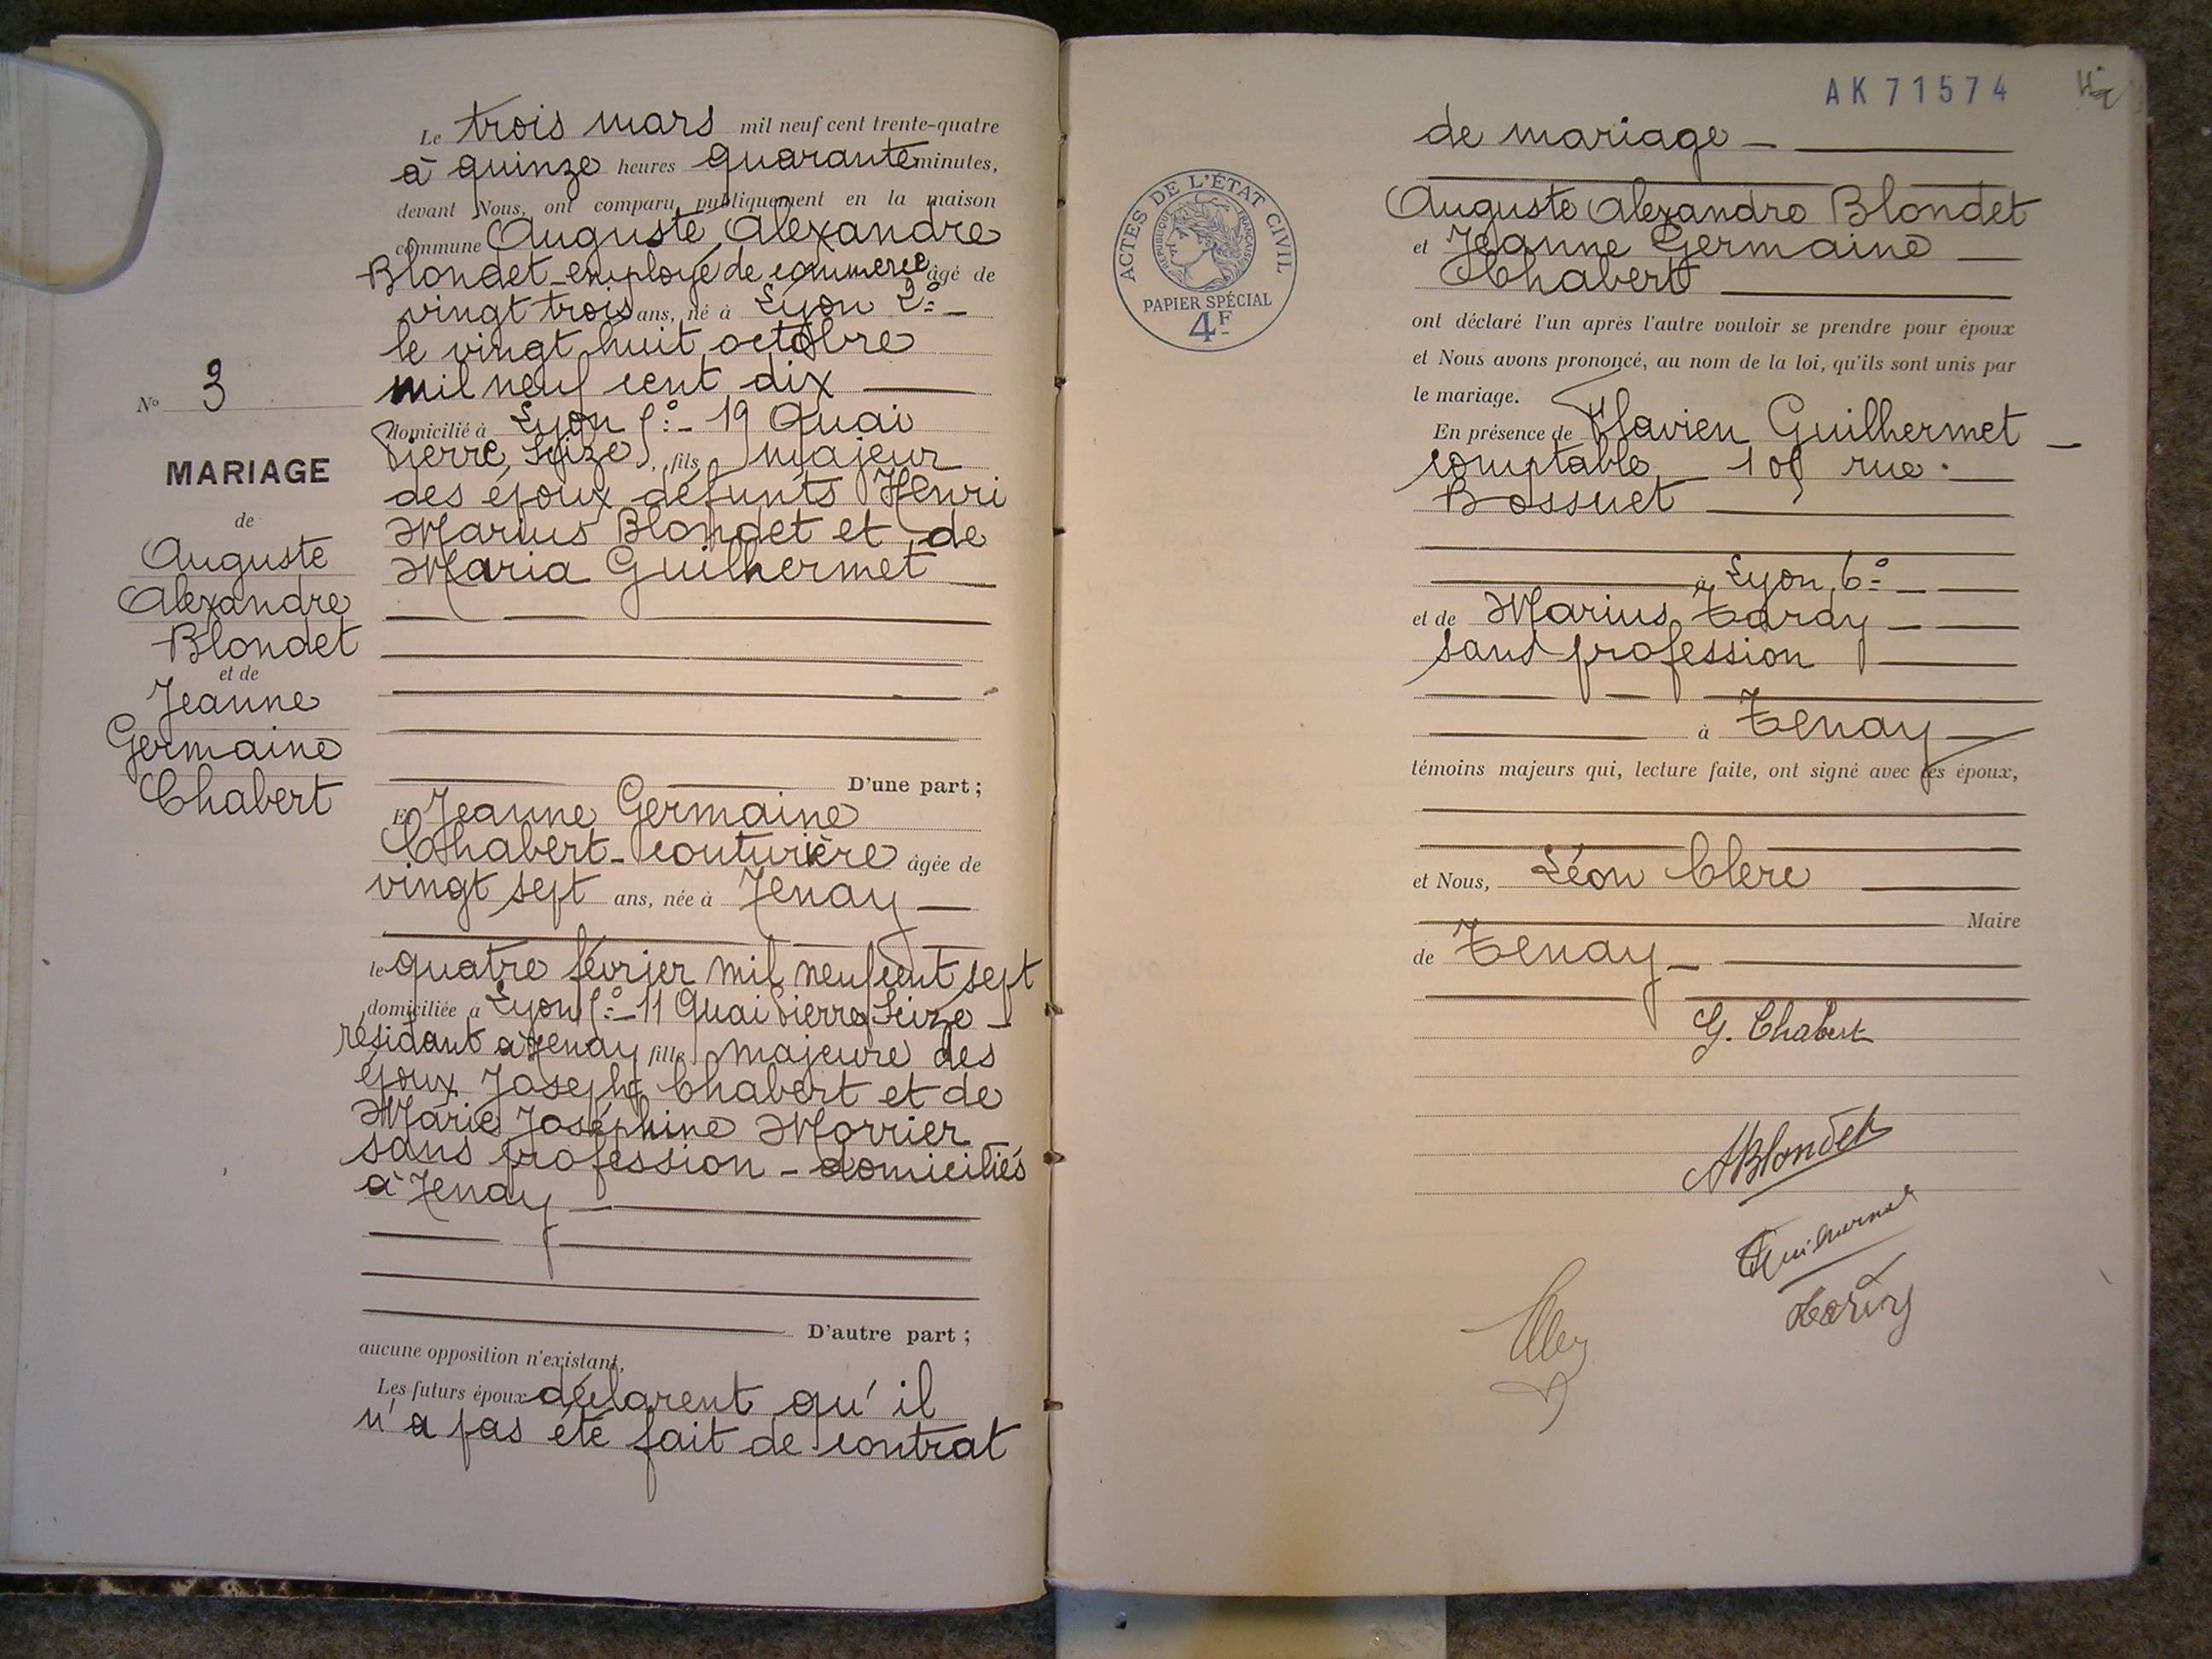 N° 3
MARIAGE
de
Auguste
Alexandre
Blondet
et de
Jeanne
Germaine
Chabert
Le trois mars mil neuf cent trente-quatre
à quinze heures quarante minutes,
devant Nous, ont comparu publiquement en la maison
commune Auguste, Alexandre
Blondet - employé de commerce âgé de
vingt trois ans, né à Lyon 2º
le vingt huit octobre
mil neuf cent dix
domicilié à Lyon 5º - 19 Quai
Pierre Scize, fils majeur
des époux défunts Henri
Marius Blondet et de
Maria Guilhermet
D'une part ;
Et Jeanne Germaine
Chabert - couturière âgée de
vingt sept ans, née à Tenay
le quatre février mil neuf cent sept
domiciliée à Lyon 5º - 11 Quai Pierre Scize -
résidant à Tenay fille majeure des
époux Joseph Chabert et de
Marie Joséphine Morrier
sans profession - domiciliés
à Tenay
D'autre part ;
aucune opposition n'existant,
Les futurs époux déclarent qu'il
n'a pas été fait de contrat
AK 71574
ACTES DE L'ÉTAT CIVIL
RÉPUBLIQUE FRANÇAISE
PAPIER SPÉCIAL
4F
de mariage
Auguste Alexandre Blondet
et Jeanne Germaine
Chabert
ont déclaré l'un après l'autre vouloir se prendre pour époux
et Nous avons prononcé, au nom de la loi, qu'ils sont unis par
le mariage.
En présence de Flavien Guilhermet
comptable 105 rue
Bossuet
à Lyon 6º
et de Marius Tardy
sans profession
à Tenay
témoins majeurs qui, lecture faite, ont signé avec les époux,
et Nous, Léon Clerc
Maire
de Tenay
G. Chabert
ABlondet
Guilhermet
Tardy